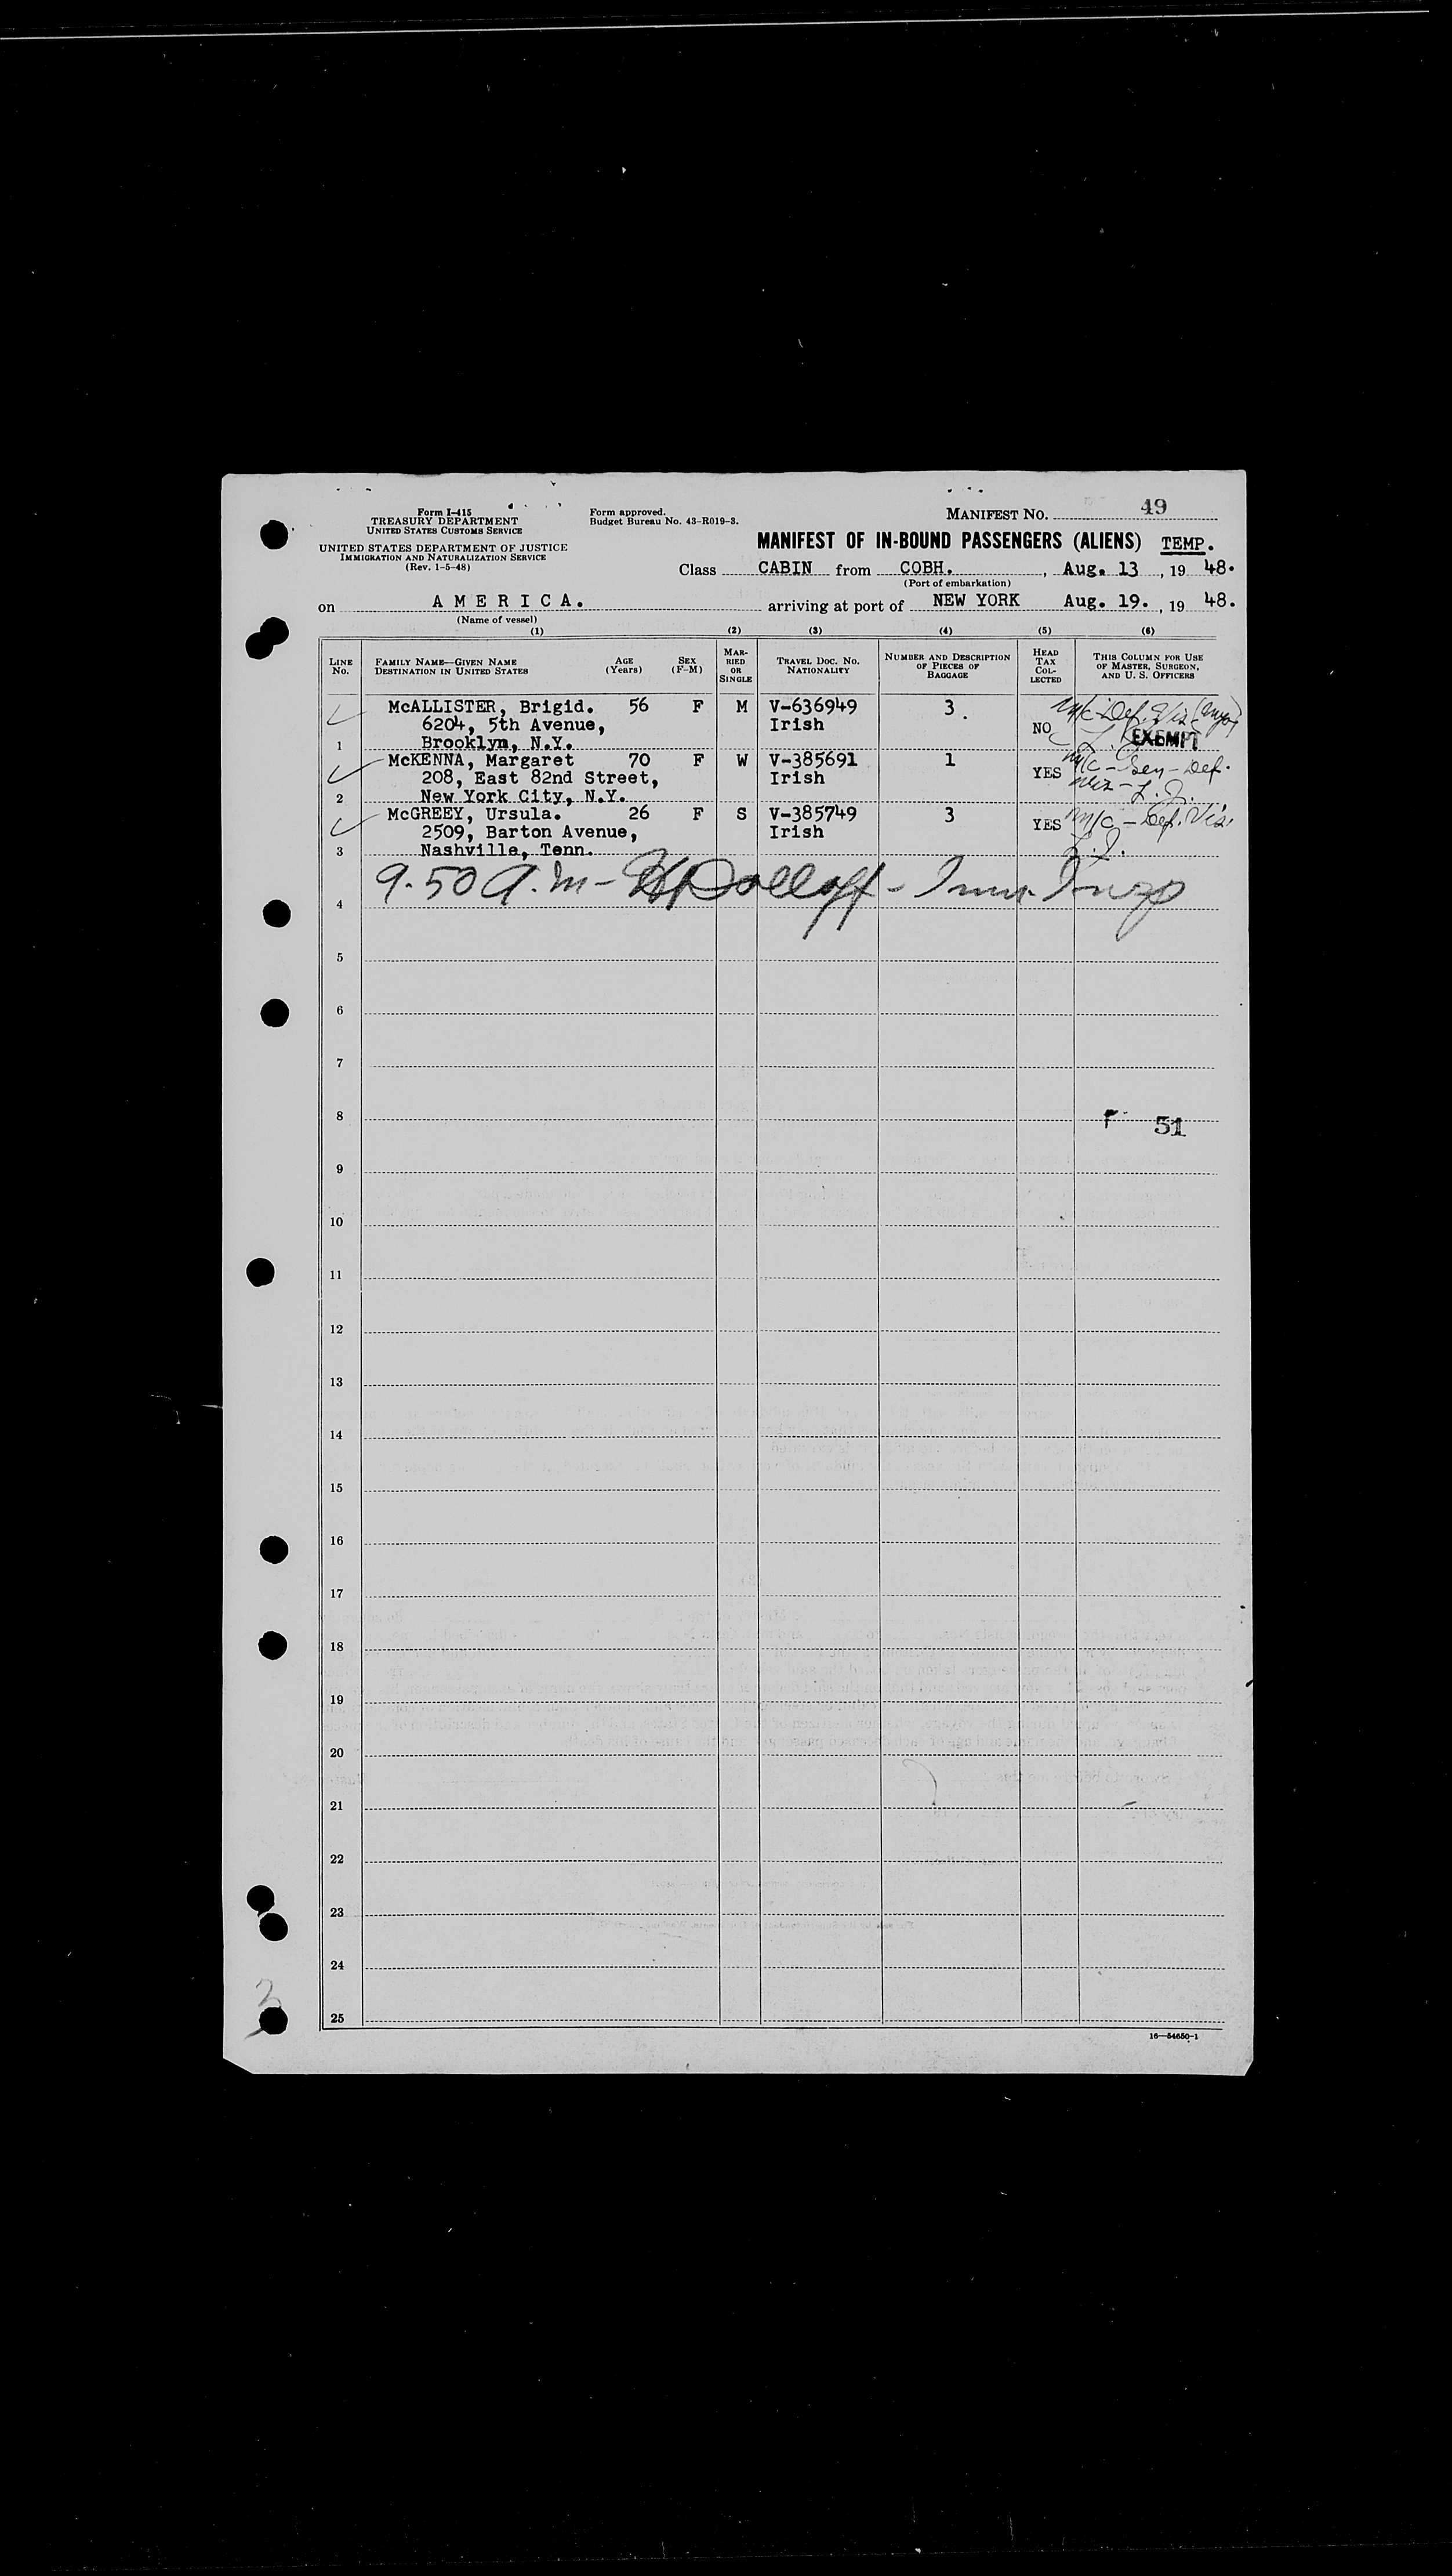 Form I-415
TREASURY DEPARTMENT
UNITED STATES CUSTOMS SERVICE
UNITED STATES DEPARTMENT OF JUSTICE
IMMIGRATION AND NATURALIZATION SERVICE
(Rev. 1-5-48)
Form approved.
Budget Bureau No. 43-R019-3.
MANIFEST NO. 49
MANIFEST OF IN-BOUND PASSENGERS (ALIENS) TEMP.
Class CABIN from COBH. , Aug. 13 , 19 48.
(Port of embarkation)
on A M E R I C A. arriving at port of NEW YORK Aug. 19. , 19 48.
(Name of vessel)
(1) (2) (3) (4) (5) (6)
LINE NO. FAMILY NAME—GIVEN NAME DESTINATION IN UNITED STATES AGE (Years) SEX (F-M) MARRIED OR SINGLE TRAVEL DOC. NO. NATIONALITY NUMBER AND DESCRIPTION OF PIECES OF BAGGAGE HEAD TAX COLLECTED THIS COLUMN FOR USE OF MASTER, SURGEON, AND U. S. OFFICERS
McALLISTER, Brigid. 56 F M V-636949 3. M/c-Def. Vis
6204, 5th Avenue, Irish NO
1 Brooklyn, N.Y. EXEMPT
McKENNA, Margaret 70 F W V-385691 1 M/c - Sen - Def.
208, East 82nd Street, Irish YES
2 New York City, N.Y.
McGREEY, Ursula. 26 F S V-385749 3 M/c - Def. Vis.
2509, Barton Avenue, Irish YES
3 Nashville, Tenn.
9.50 A.M - - Imm. Insp
4
5
6
7
8 51
9
10
11
12
13
14
15
16
17
18
19
20
21
22
23
24
3
25
16—54650-1